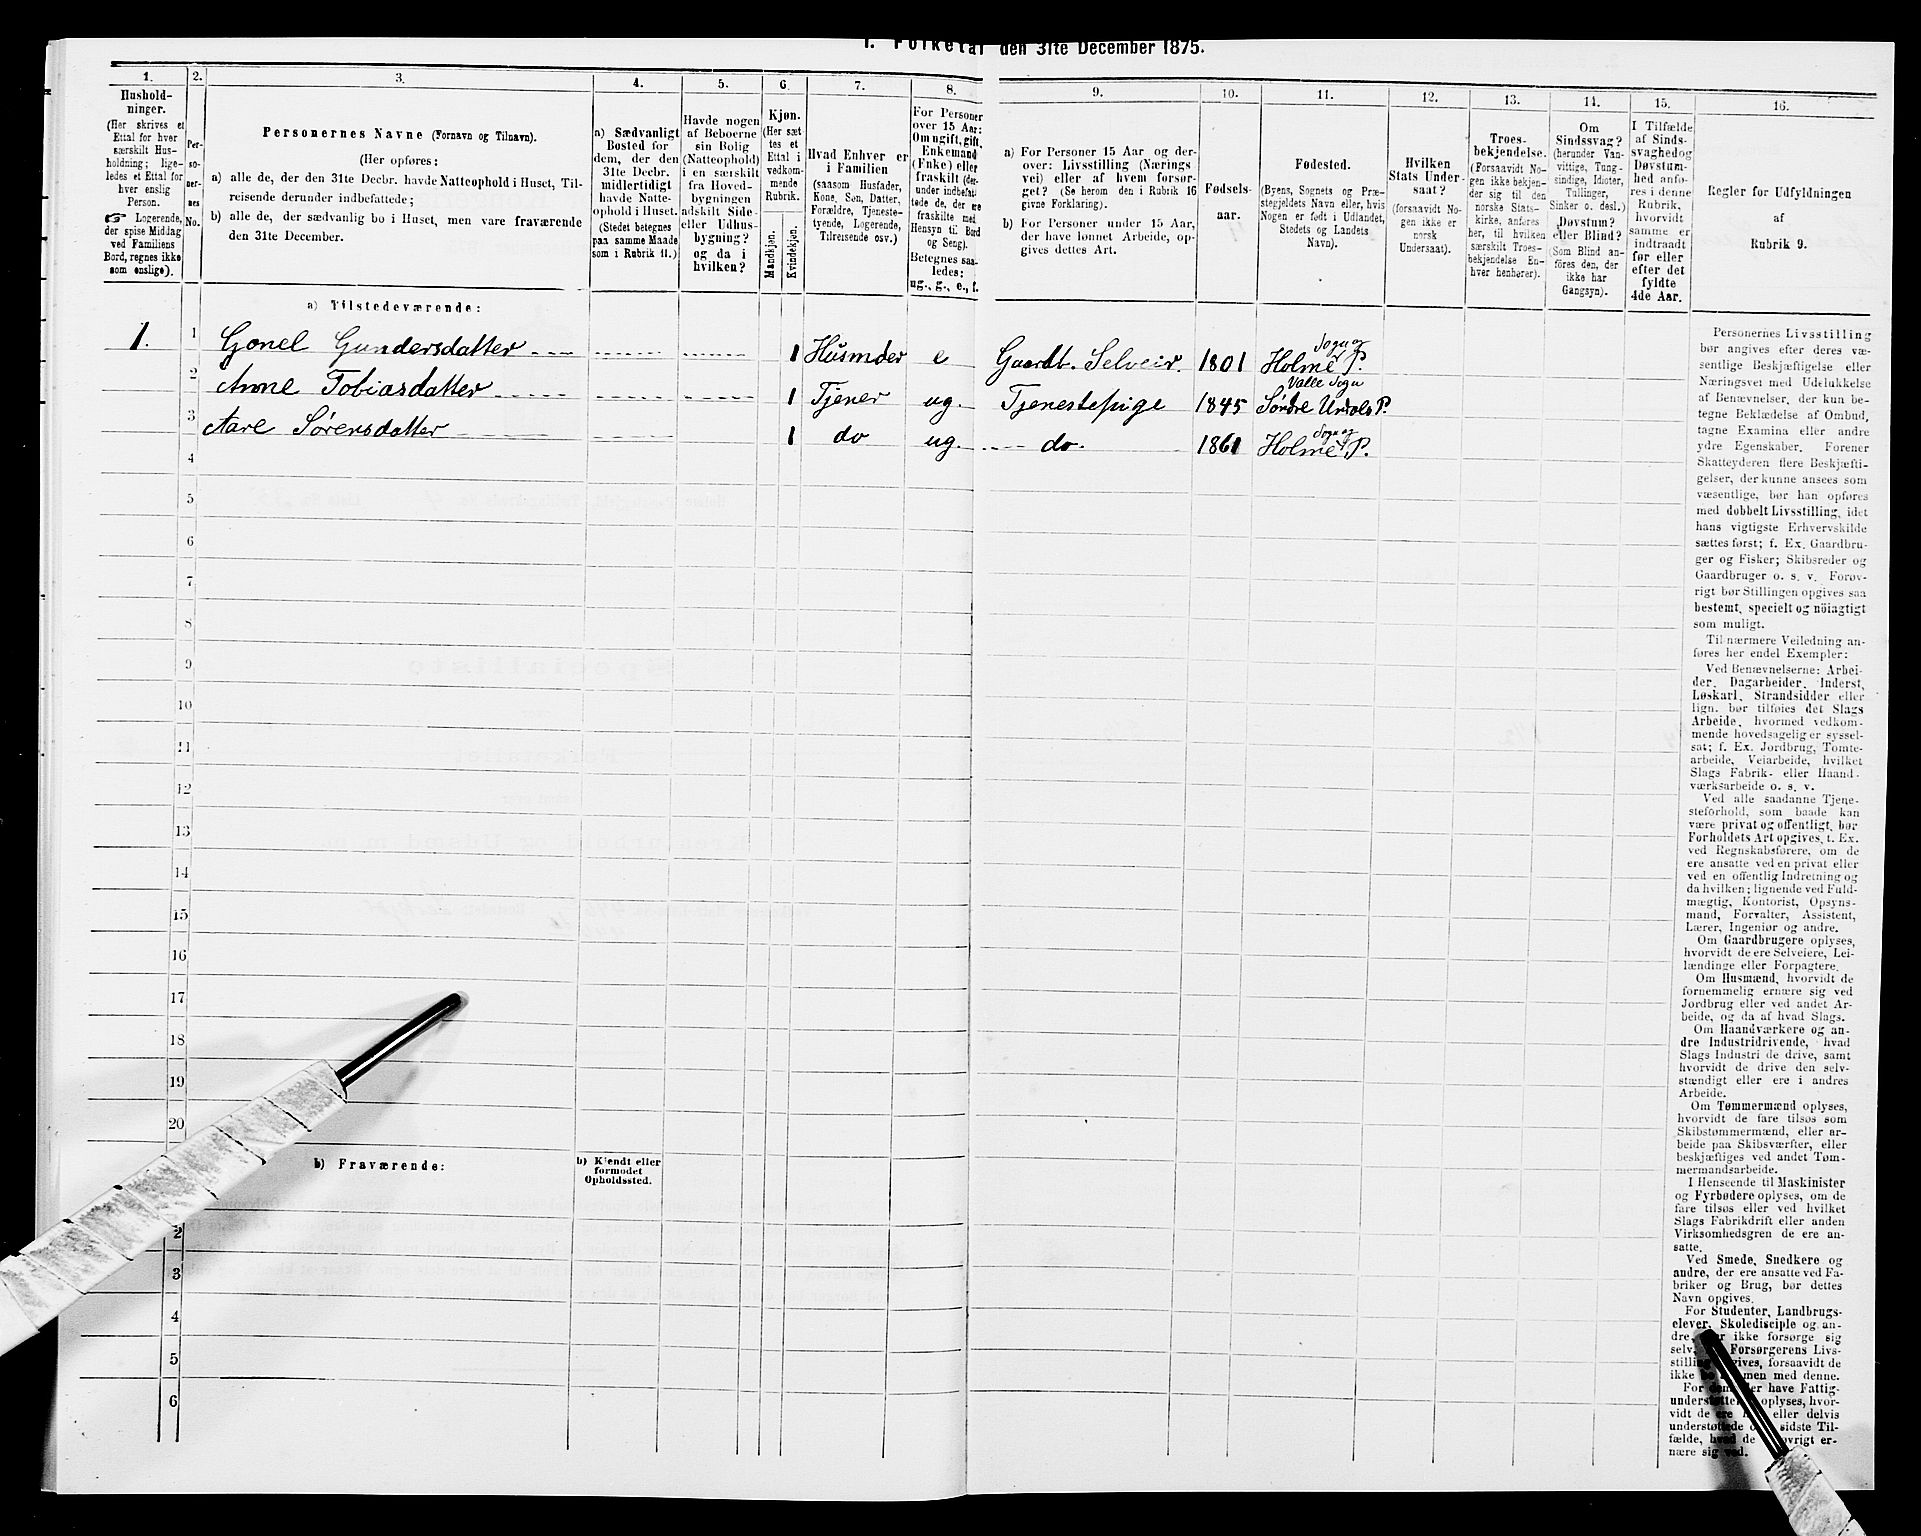 1. Folketal den 31te December 1875.
1.
Hushold-
ninger.
(Her skrives et
Ettal for hver
særskilt Hus-
holdning; lige-
ledes et Ettal for
hver enslig
Person.
☞ Logerende,
der spise Middag
ved Familiens
Bord, regnes ikke
som enslige).
2.
Per-
so-
ner-
nes
No.
3.
Personernes Navne (Fornavn og Tilnavn).
(Her opføres:
a) alle de, der den 31te Decbr. havde Natteophold i Huset, Til-
reisende derunder indbefattede;
b) alle de, der sædvanlig bo i Huset, men vare fraværende
den 31te December.
4.
a) Sædvanligt
Bosted for
dem, der den
31te Decbr.
midlertidigt
havde Natte-
ophold i Huset.
(Stedet betegnes
paa samme Maade
som i Rubrik 11.)
5.
Havde nogen
af Beboerne
sin Bolig
(Natteophold)
i en særskilt
fra Hoved-
bygningen
adskilt Side-
eller Udhus-
bygning?
og da i
hvilken?
6.
Kjøn.
(Her sæt-
tes et
Ettal i
vedkom-
mende
Rubrik.
Mandkjøn.
Kvindekjøn.
7.
Hvad Enhver er
i Familien
(saasom Husfader,
Kone, Søn, Datter,
Forældre, Tjeneste-
tyende, Logerende,
Tilreisende osv.)
8.
For Personer
over 15 Aar:
Om ugift, gift,
Enkemand
(Enke) eller
fraskilt (der-
under indbefat-
tede de, der ere
fraskilte med
Hensyn til Bord
og Seng).
Betegnes saa-
ledes:
ug., g., e., f.
9.
a) For Personer 15 Aar og der-
over: Livsstilling (Nærings-
vei) eller af hvem forsør-
get? (Se herom den i Rubrik 16
givne Forklaring).
b) For Personer under 15 Aar,
der have lønnet Arbeide, op-
gives dettes Art.
10.
Fødsels-
aar.
11.
Fødested.
(Byens, Sognets og Præ-
stegjeldets Navn eller, hvis
Nogen er født i Udlandet,
Stedets og Landets
Navn).
12.
Hvilken
Stats Under-
saat?
(forsaavidt No-
gen ikke er
norsk
Undersaat).
13.
Troes-
bekjendelse.
(Forsaavidt No-
gen ikke bekjen-
der sig til den
norske Stats-
kirke, anføres
her, til hvilken
særskilt Troes-
bekjendelse En-
hver henhører).
14.
Om
Sindssvag?
(herunder Van-
vittige, Tung-
sindige, Idioter,
Tullinger,
Sinker o. desl.)
Døvstum?
eller Blind?
(Som Blind an-
føres den, der
ikke har
Gangsyn).
15.
I Tilfælde
af Sinds-
svaghed og
Døvstum-
hed anfø-
res i denne
Rubrik,
hvorvidt
samme er
indtraadt
før eller
efter det
fyldte
4de Aar.
16.
Regler for Udfyldningen
af
Rubrik 9.
a) Tilstedeværende:
1. 1 Gonel Gundersdatter 1 Husmder e Gaardb. Selveir. 1801 Holme Sogn og P.
2 Anne Tobiasdatter 1 Tjener ug. Tjenestepige 1845 Valle Sogn Søndre Undals P.
3 Aare Sørensdatter 1 do ug. do. 1861 Holme Sogn og P.
4
5
6
7
8
9
10
11
12
13
14
15
16
17
18
19
20
b) Fraværende:
b) Kjendt eller
formodet
Opholdssted.
2
3
4
5
6
Personernes Livsstilling
bør angives efter deres væ-
sentlige Beskjæftigelse eller
Næringsvei med Udelukkelse
af Benævnelser, der kun be-
tegne Beklædelse af Ombud,
tagne Examina eller andre
ydre Egenskaber. Forener
Skatteyderen flere Beskjæfti-
gelser, der kunne ansees som
væsentlige, bør han opføres
med dobbelt Livsstilling, idet
hans vigtigste Erhvervskilde
sættes først; f. Ex. Gaardbru-
ger og Fisker; Skibsreder og
Gaardbruger o. s. v. Forøv-
rigt bør Stillingen opgives saa
bestemt, specielt og nöiagtigt
som muligt.
Til nærmere Veiledning an-
føres her endel Exempler:
Ved Benævnelserne: Arbei-
der, Dagarbeider, Inderst,
Løskarl, Strandsidder eller
lign. bør tilføies det Slags
Arbeide, hvormed vedkom-
mende hovedsagelig er syssel-
sat; f. Ex. Jordbrug, Tomte-
arbeide, Veiarbeide, hvilket
Slags Fabrik- eller Haand-
værksarbeide o. s. v.
Ved alle saadanne Tjene-
steforhold, som baade kan
være privat og offentligt, bør
Forholdets Art opgives, t. Ex.
ved Regnskabsførere, om de
ere ansatte ved en privat eller
ved en offentlig Indretning og
da hvilken; lignende ved Fuld-
mægtig, Kontorist, Opsyns-
mand, Forvalter, Assistent,
Lærer, Ingeniør og andre.
Om Gaardbrugere oplyses,
hvorvidt de ere Selveiere, Lei-
lændinge eller Forpagtere.
Om Husmænd, hvorvidt de
fornemmelig ernære sig ved
Jordbrug eller ved andet Ar-
beide, og da af hvad Slags.
Om Haandværkere og an-
dre Industridrivende, hvad
Slags Industri de drive, samt
hvorvidt de drive den selv-
stændigt eller ere i andres
Arbeide.
Om Tømmermænd oplyses,
hvorvidt de fare tilsøs som
Skibstømmermænd, eller ar-
beide paa Skibsværfter, eller
beskjæftiges ved andet Tøm-
mermandsarbeide.
I Henseende til Maskinister
og Fyrbødere oplyses, om de
fare tilsøs eller ved hvilket
Slags Fabrikdrift eller anden
Virksomhedsgren de ere an-
satte.
Ved Smede, Snedkere og
andre, der ere ansatte ved Fa-
briker og Brug, bør dettes
Navn opgives.
For Studenter, Landbrugs-
elever, Skoledisciple og an-
dre, ikke forsørge sig
selv, Forsørgerens Livs-
stilling gives, forsaavidt de
ikke men med denne.
For have Fattig-
understøttelse oplyses, hvor-
vidt de ere eller delvis
understøttede sidste Til-
fælde, hvad de øvrigt er-
nære sig ved.